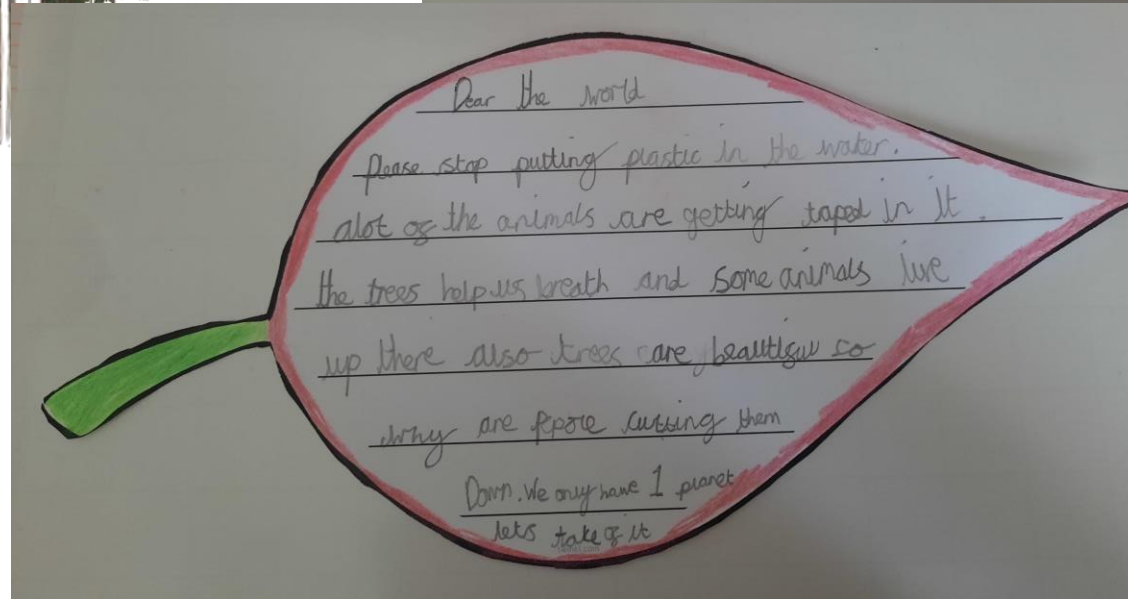 Dear the world
please stop putting plastic in the water.
alot of the animals are getting taped in it.
the trees help us breath and some animals live
up there also trees are beautiful so
why are pepole cutting them
Down. We only have 1 planet
lets take of it